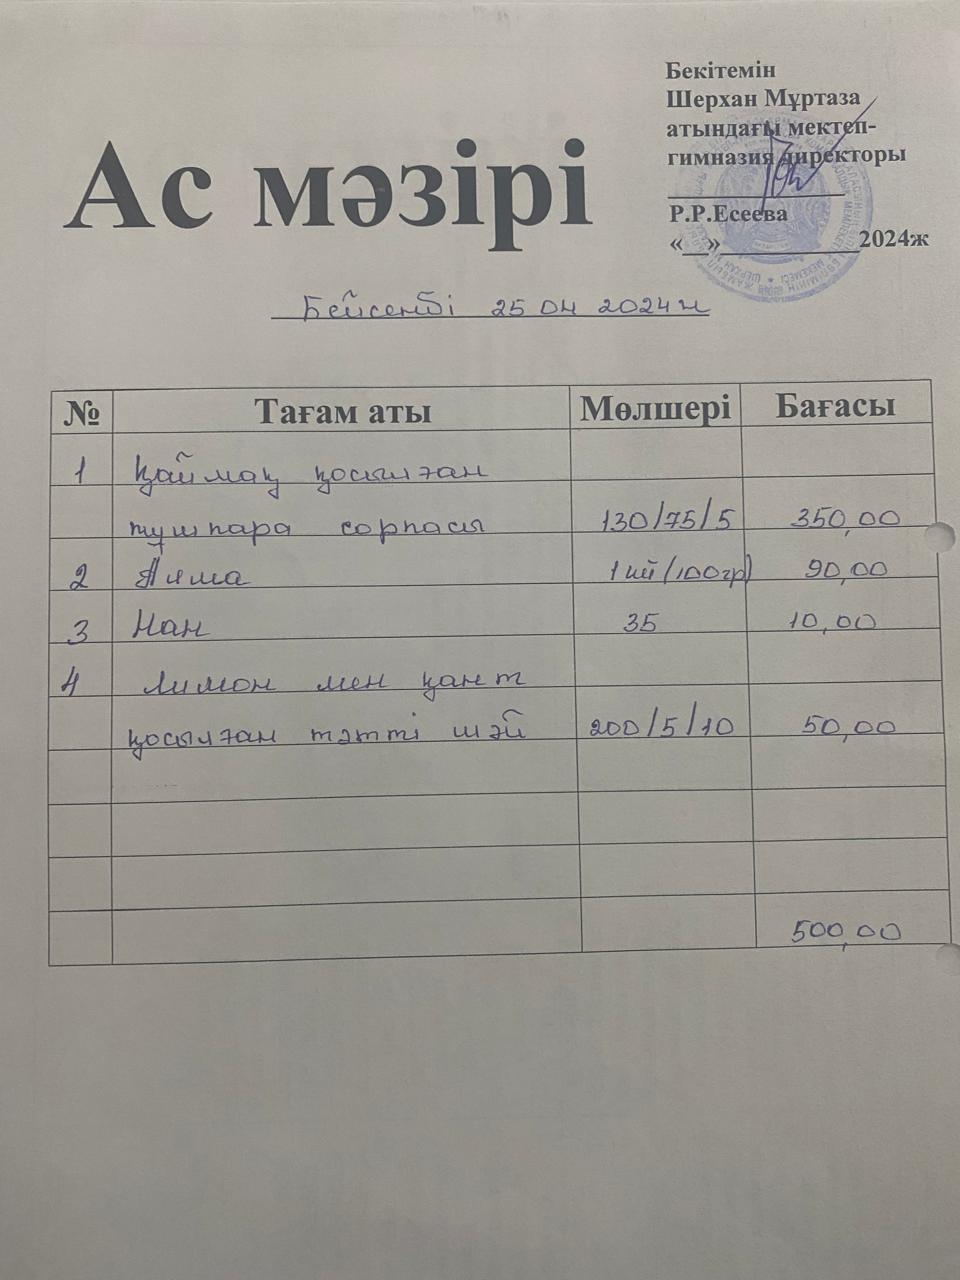 Бекітемін
Шерхан Мұртаза
атындағы мектеп-
гимназия директоры
Р.Р.Есеева
«__»____________2024ж
Ас мәзірі
Бейсенбі 25 04 2024ж
№ Тағам аты Мөлшері Бағасы
1 Қаймақ қосылған
тұшпара сорпасы 130/75/5 350,00
2 Алма 1 шт (100гр) 90,00
3 Нан 35 10,00
4 Лимон мен қант
қосылған тәтті шәй 200/5/10 50,00
500,00